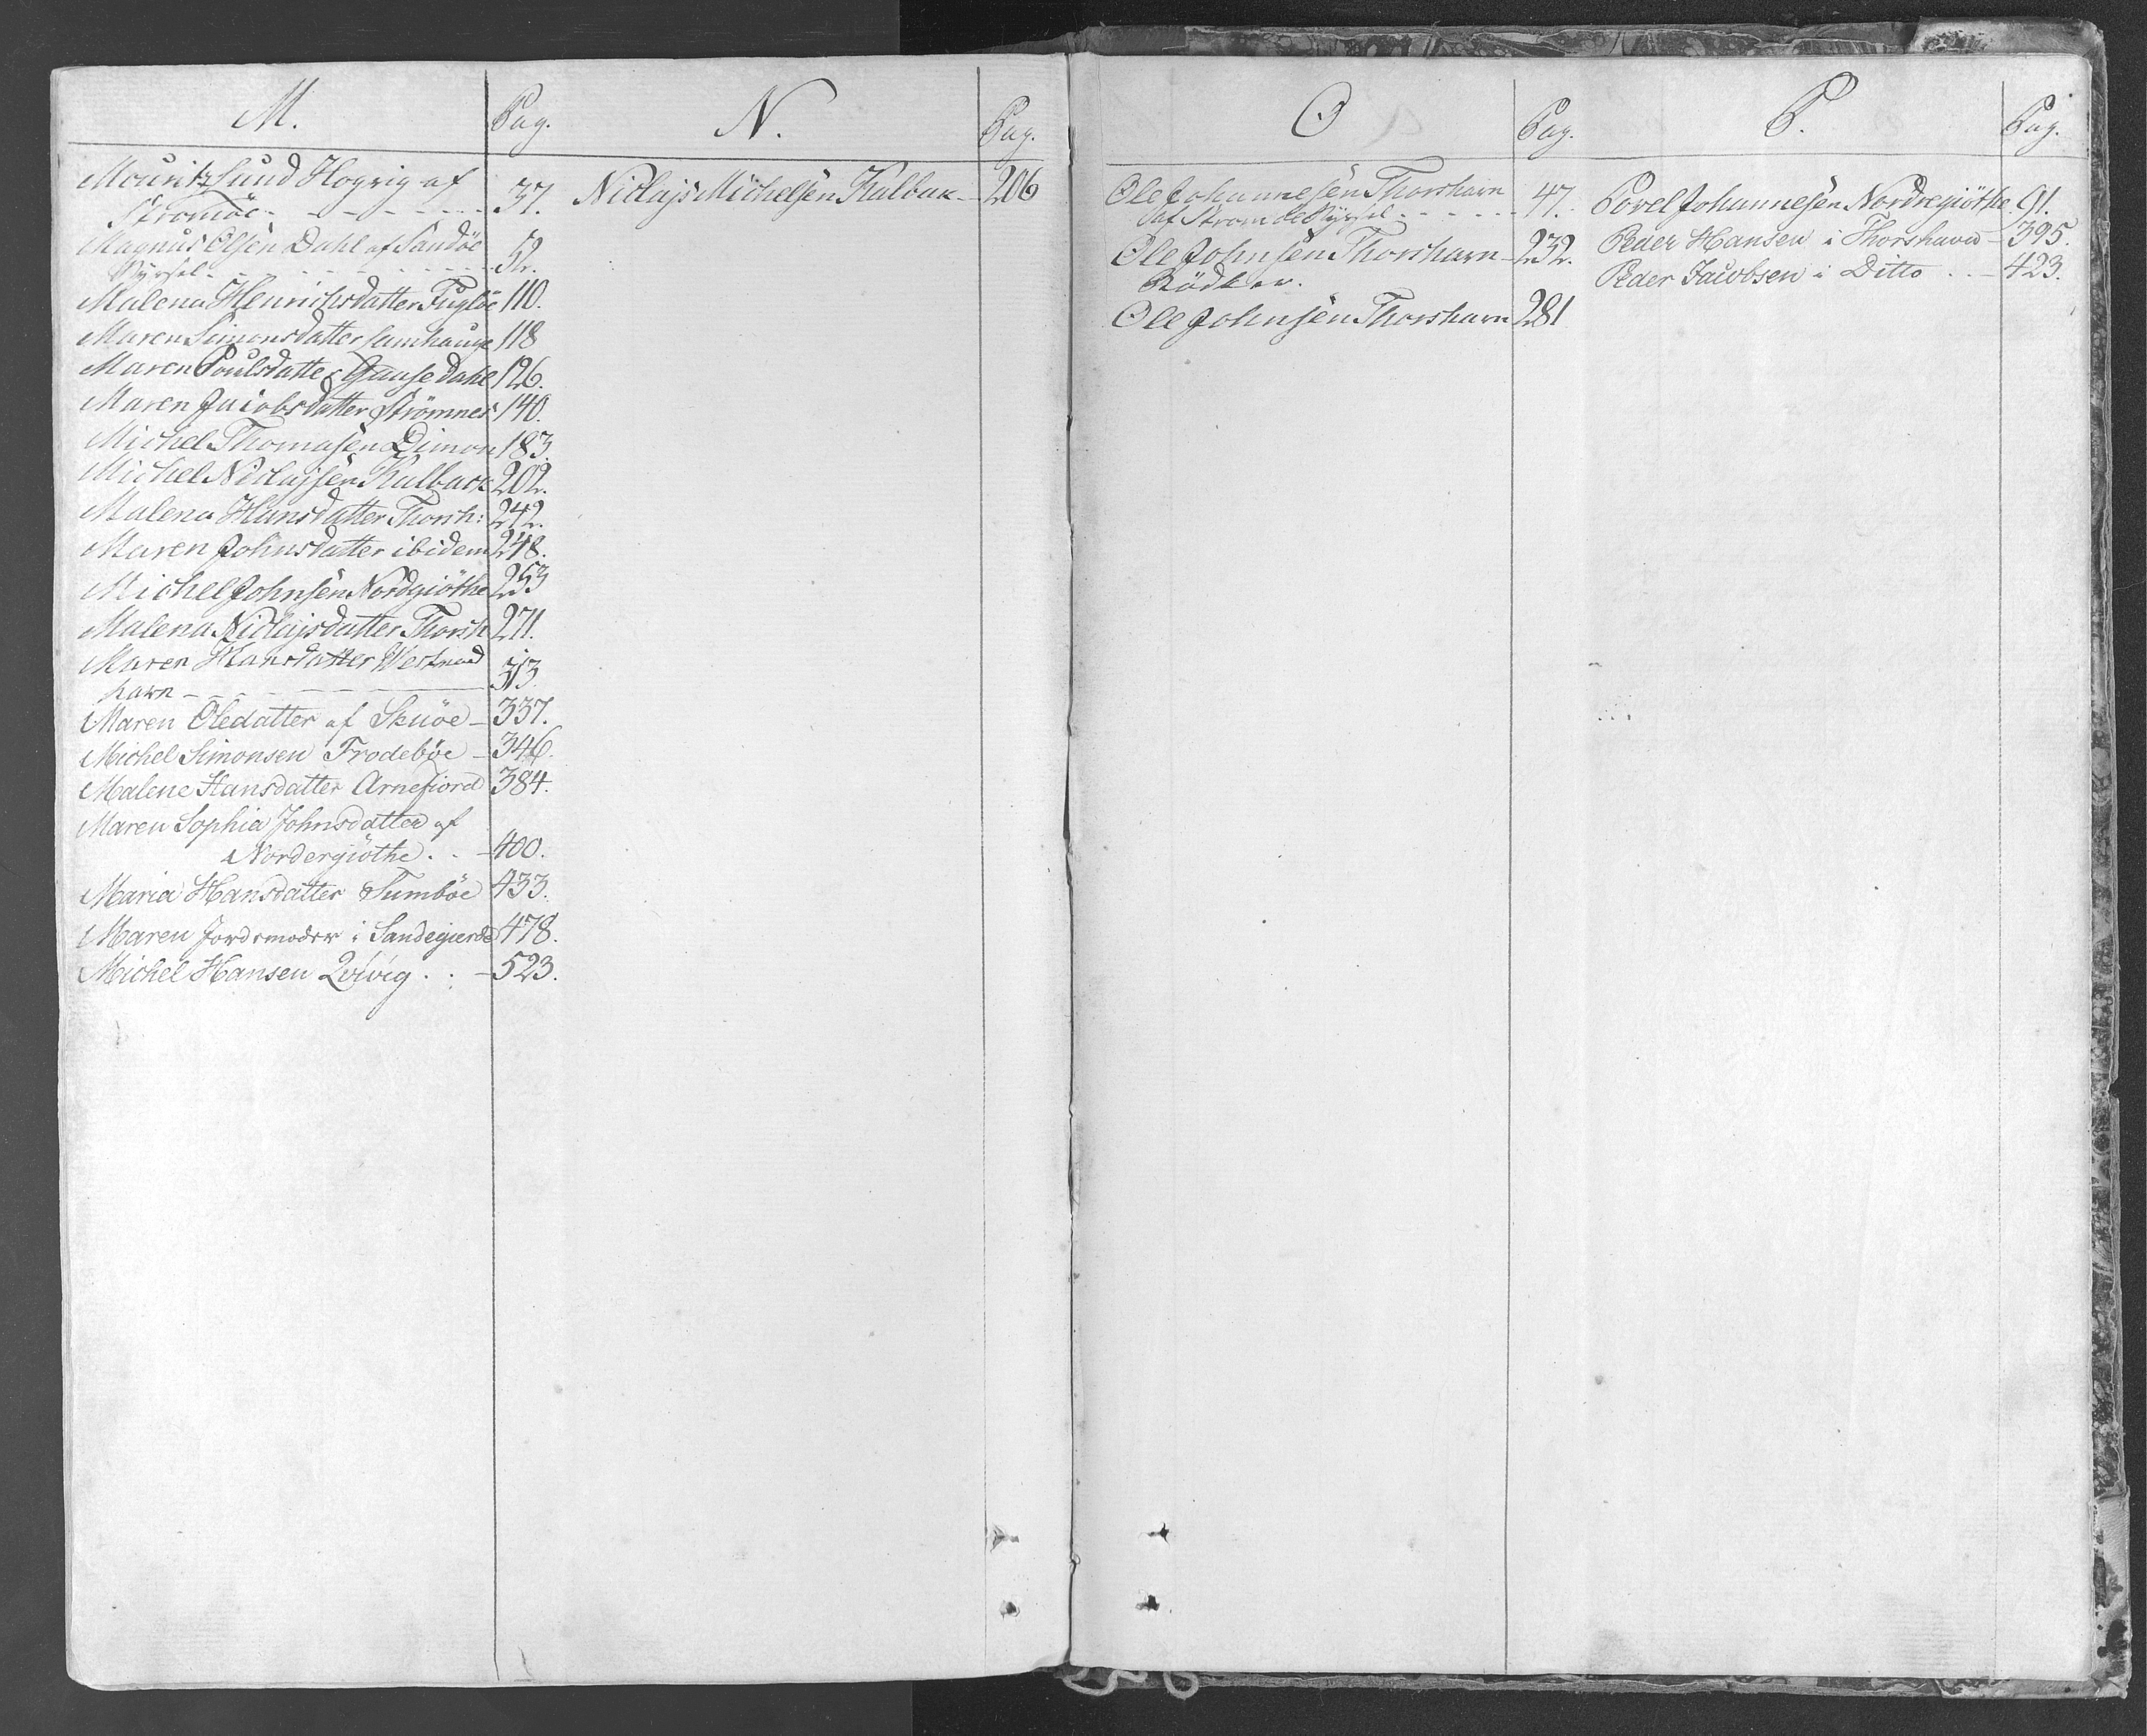 M.
Pag.
Mouritz Lund Hogrig af
Stromöe - - - - - 37.
Magnus Olsen Dahl af Sandöe
Sÿssel - - - - - 52.
Malena Henrichsdatter Fuglöe 110.
Maren Simonsdatter Lamhauge 118
Maren Poulsdatter Dahl 126.
Maren Jacobsdatter Strömnes 140.
Michel Thomasen Dimon 183.
Michel Niclajsen Kalback 202.
Malena Hansdatter Thorsh: 242.
Maren Johnsdatter ibidem 248.
Michel Johnsen Nordgiöthe 253
Malena Niclajsdatter Thorsh 271.
Maren Hansdatter Westmand
havn - - - - - 313.
Maren Oledatter af Skuöe - 337.
Michel Simonsen Frodebøe - 346.
Malene Hansdatter Arnefiord 384.
Maren Sophia Johnsdatter af
Nordergiøthe . . - 400.
Maria Hansdatter Sumbøe 433.
Maren Jordemoder i Sandegierde 478.
Michel Hansen Qvivig . . - 523.
N.
Pag.
Niclajs Michelsen Kalbak - 206
O
Pag.
Ole Johannesen Thorshavn
af Strömöe Sÿssel - - - - - 47.
Ole Johnsen Thorshavn - 232.
Bödker.
Ole Johnsen Thorshavn 281
P.
Pag.
Povel Johannesen Nordregiöthe 91.
Peder Hansen i Thorshavn - 395.
Peder Jacobsen i Ditto . . - 423.